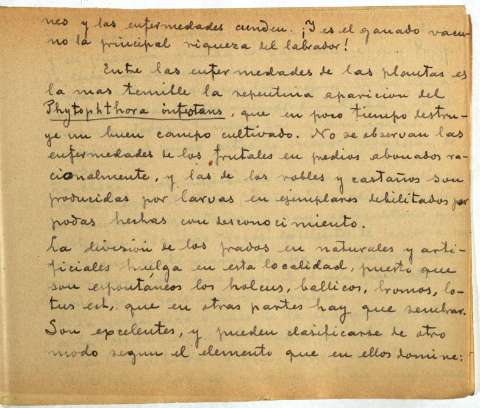 neo y las enfermedades cunden. ¡Y es el ganado vacu-
no la principal riqueza del labrador!
Entre las enfermedades de las plantas es
la mas temible la repentina aparicion del
Phytophthora infestans, que en poco tiempo destru-
ye un buen campo cultivado. No se observan las
enfermedades de los frutales en predios abonados ra-
cionalmente, y las de los robles y castaños son
producidas por larvas en ejemplares debilitados por
podas hechas con desconocimiento.
La división de los prados en naturales y arti-
ficiales huelga en esta localidad, puesto que
son espontáneos los holcus, ballicos, bromos, lo-
tus ect, que en otras partes hay que sembrar.
Son excelentes, y pueden clasificarse de otro
modo segun el elemento que en ellos domine: